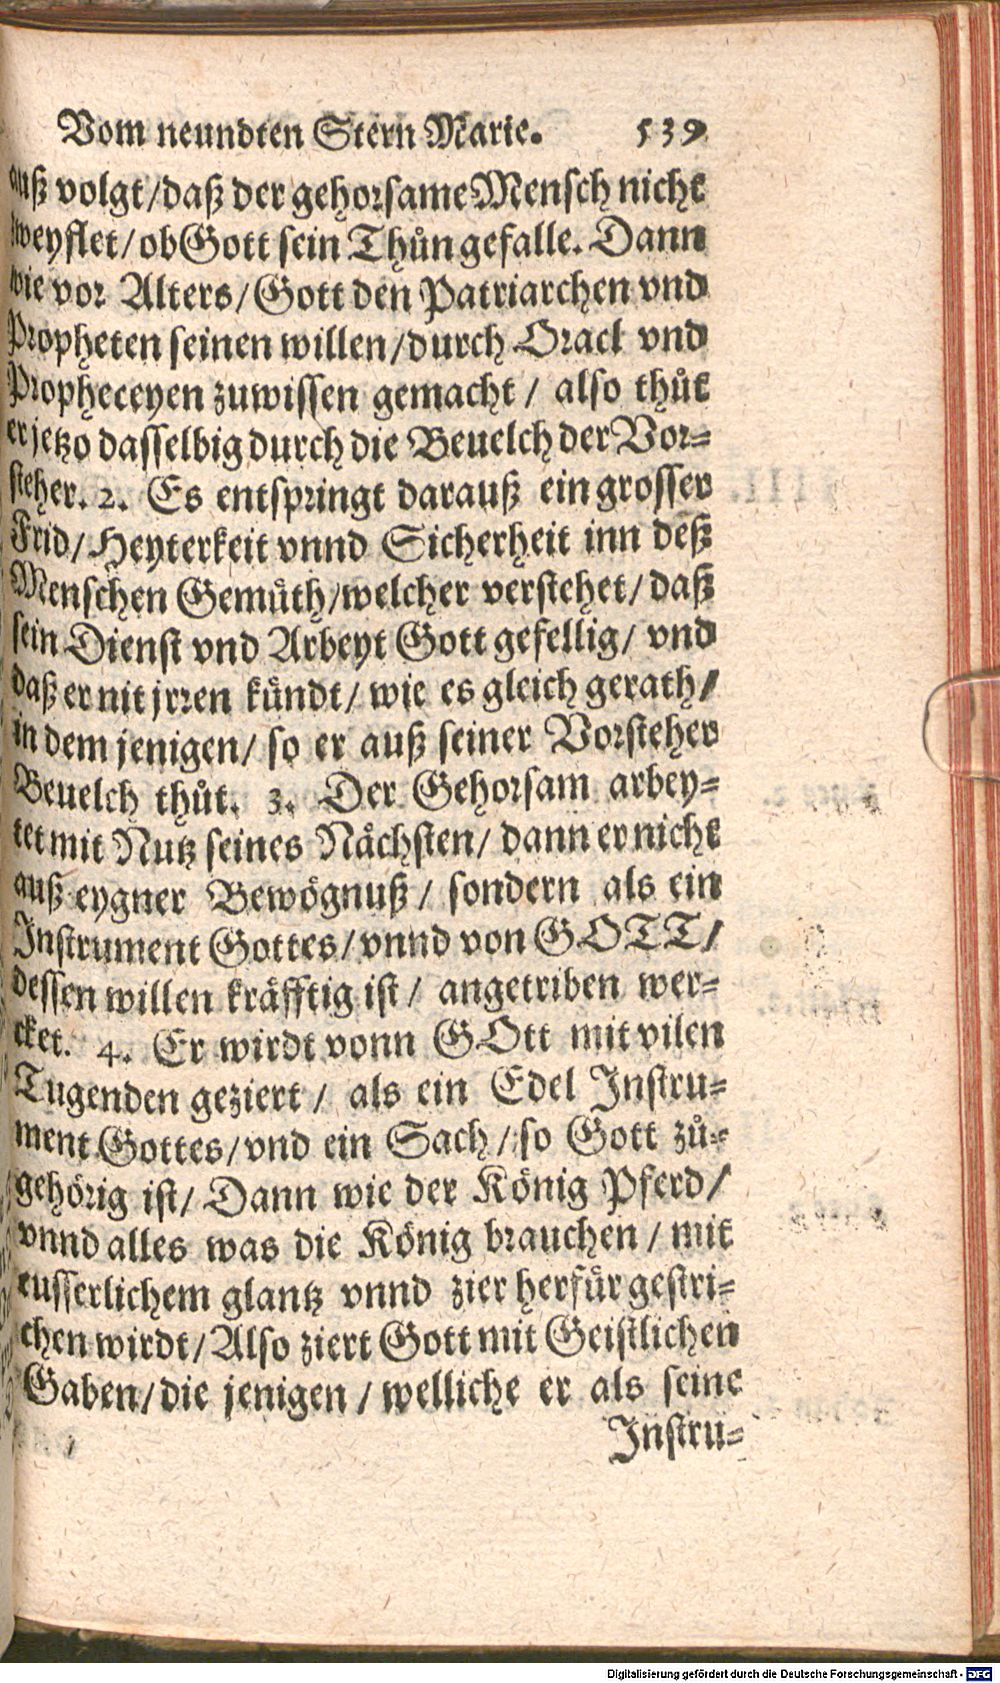 Vom neundten Stern Marie. 539
auß volgt/daß der gehorsame Mensch nicht
zweyflet/ob Gott sein Thůn gefalle. Dann
wie vor Alters/Gott den Patriarchen vnd
Propheten seinen willen/durch Oracl vnd
Propheceyen zuwissen gemacht/ also thůt
er jetzo dasselbig durch die Beuelch der Vor-
steher. 2. Es entspringt darauß ein grosser
Frid/Heyterkeit vnnd Sicherheit inn deß
Menschen Gemüth/welcher verstehet/daß
sein Dienst vnd Arbeyt Gott gefellig/ vnd
daß er nit jrren kündt/ wie es gleich gerath/
in dem jenigen/ so er auß seiner Vorsteher
Beuelch thůt. 3. Der Gehorsam arbey-
tet mit Nutz seines Nächsten/ dann er nicht
auß eygner Bewögnuß/ sondern als ein
Instrument Gottes/vnnd von GOTT/
dessen willen kräfftig ist/ angetriben wer-
cket. 4. Er wirdt vonn GOtt mit vilen
Tugenden geziert/ als ein Edel Instru-
ment Gottes/vnd ein Sach/so Gott zů-
gehörig ist/ Dann wie der König Pferd/
vnnd alles was die König brauchen/ mit
eusserlichem glantz vnnd zier herfür gestri-
chen wirdt/Also ziert Gott mit Geistlichen
Gaben/die jenigen/ welliche er als seine
Instru-
Digitalisierung gefördert durch die Deutsche Forschungsgemeinschaft - DFG